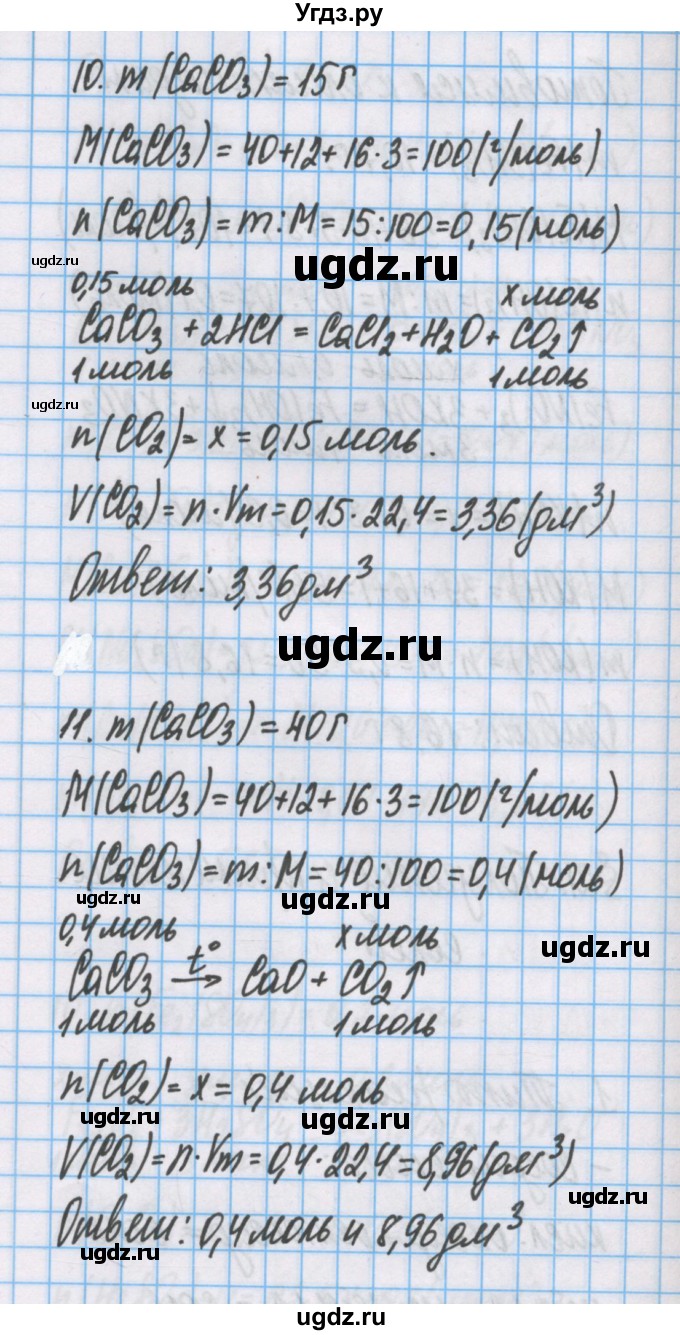 Угдз.ру
10. m(CaCO₃)=15г
M(CaCO₃)=40+12+16·3=100(г/моль)
n(CaCO₃)=m:M=15:100=0,15(моль)
ugdz.ru
ugdz.ru
0,15моль x моль
CaCO₃ +2HCl = CaCl₂+H₂O+ CO₂↑
1моль 1моль
ugdz.ru
n(CO₂)= x = 0,15моль.
V(CO₂)= n·Vm=0,15·22,4=3,36(дм³)
Ответ: 3,36дм³
ugdz.ru
11. m(CaCO₃)=40г
M(CaCO₃)=40+12+16·3=100(г/моль)
n(CaCO₃)=m:M=40:100=0,4(моль)
ugdz.ru
ugdz.ru
0,4моль x моль
ugdz.ru
CaCO₃ t°→ CaO+CO₂↑
1моль 1моль
n(CO₂)= x = 0,4моль
ugdz.ru
ugdz.ru
V(CO₂)=n·Vm=0,4·22,4=8,96(дм³)
ugdz.ru
Ответ: 0,4моль и 8,96дм³
ugdz.ru
ugdz.ru